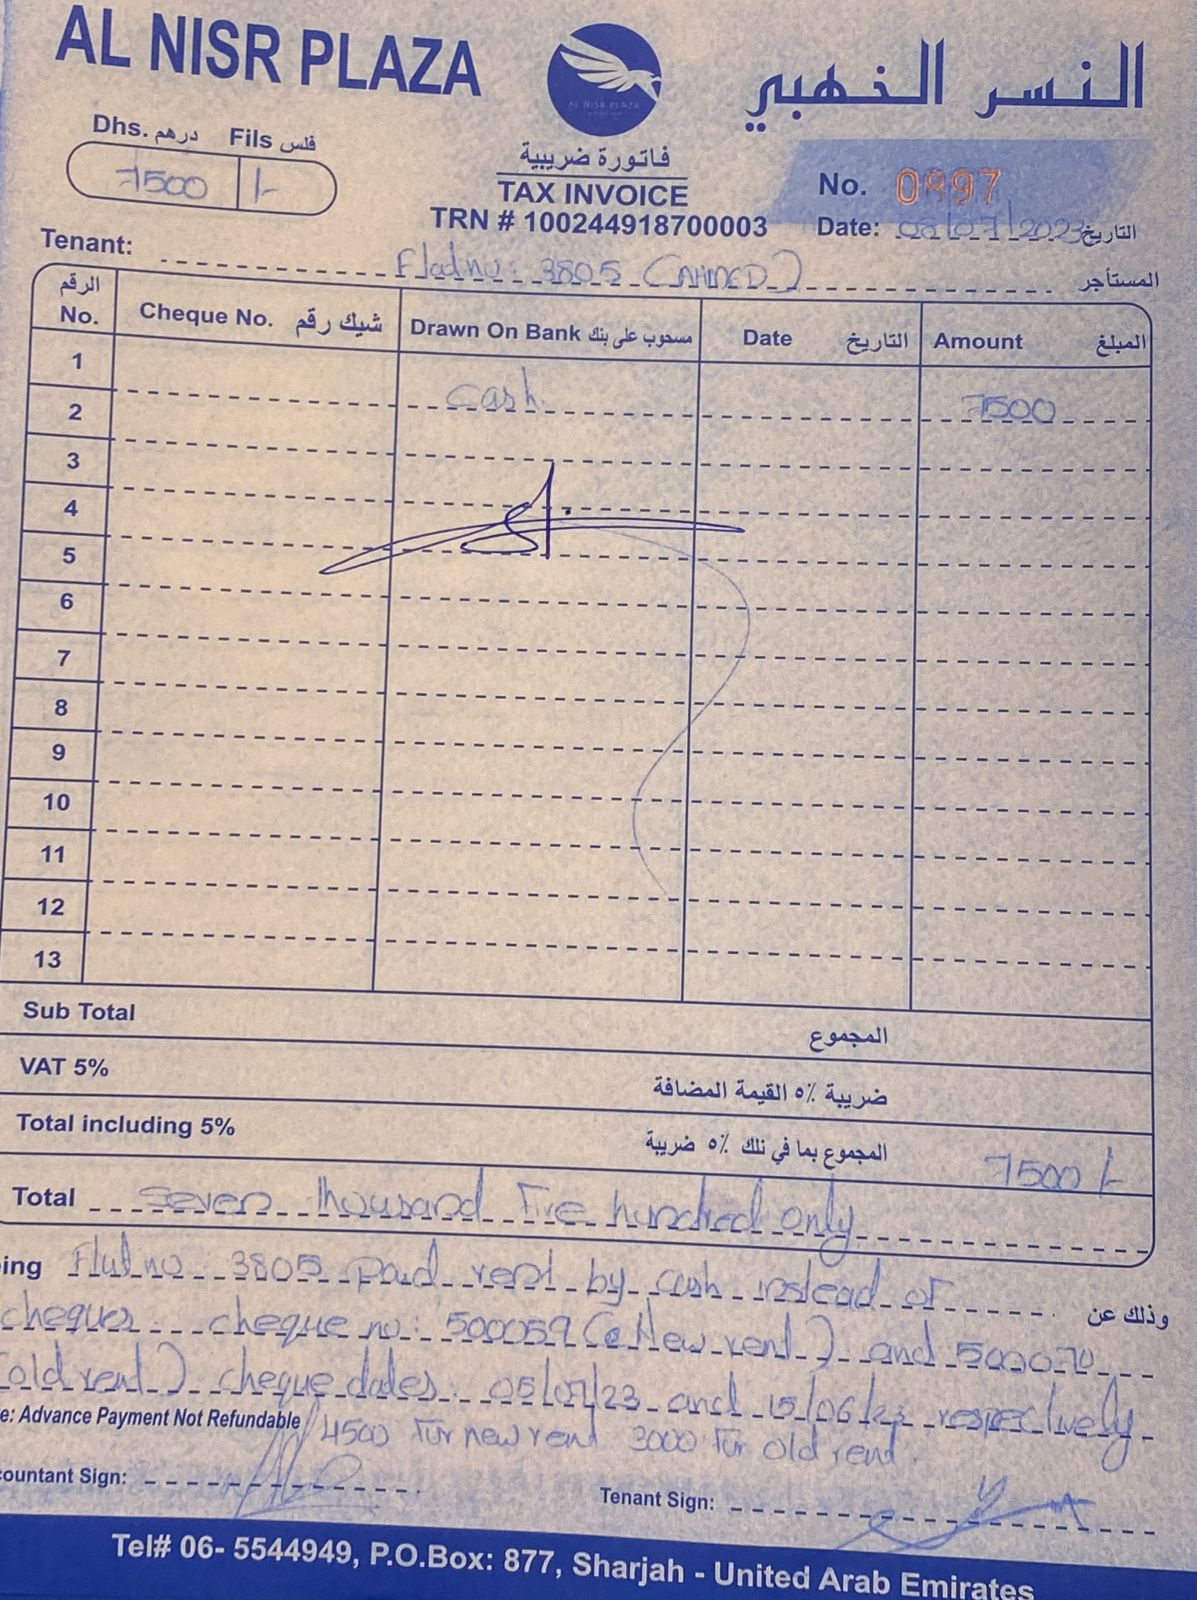 AL NISR PLAZA
النسر الذهبي
AL NISR PLAZA
Dhs. درهم Fils فلس
7500 /-
فاتورة ضريبية
TAX INVOICE
TRN # 100244918700003
No. 0897
Date: 08/07/2023 التاريخ
Tenant: Flat no: 3805 (AHMED) المستأجر
الرقم No. Cheque No. شيك رقم Drawn On Bank مسحوب على بنك Date التاريخ Amount المبلغ
1
2 cash 7500
3
4
5
6
7
8
9
10
11
12
13
Sub Total المجموع
VAT 5% ضريبة ٥٪ القيمة المضافة
Total including 5% المجموع بما في ذلك ٥٪ ضريبة 7500/-
Total Seven thousand Five hundred only
ing Flat no 3805 paid rent by cash instead of وذلك عن
cheques cheque no: 500059 New rent) and 500070
(old rent) cheque dates: 05/07/23 and 15/06/23 respectively
e: Advance Payment Not Refundable 4500 For new rent 3000 For old rent.
countant Sign:
Tenant Sign:
Tel# 06- 5544949, P.O.Box: 877, Sharjah - United Arab Emirates